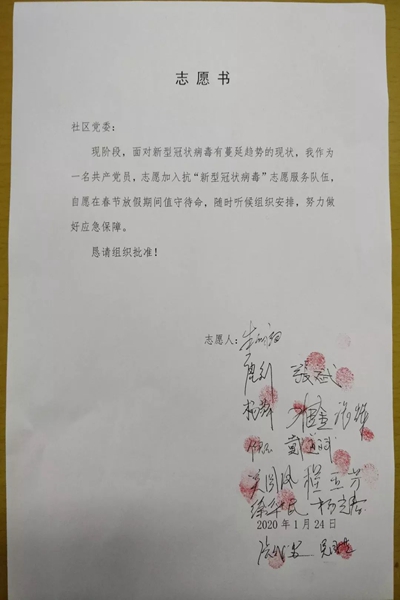 志愿书
社区党委：
现阶段，面对新型冠状病毒有蔓延趋势的现状，我作为
一名共产党员，志愿加入抗“新型冠状病毒”志愿服务队伍，
自愿在春节放假期间值守待命，随时听候组织安排，努力做
好应急保障。
恳请组织批准！
志愿人：
张斌
程亚芳
2020年1月24日